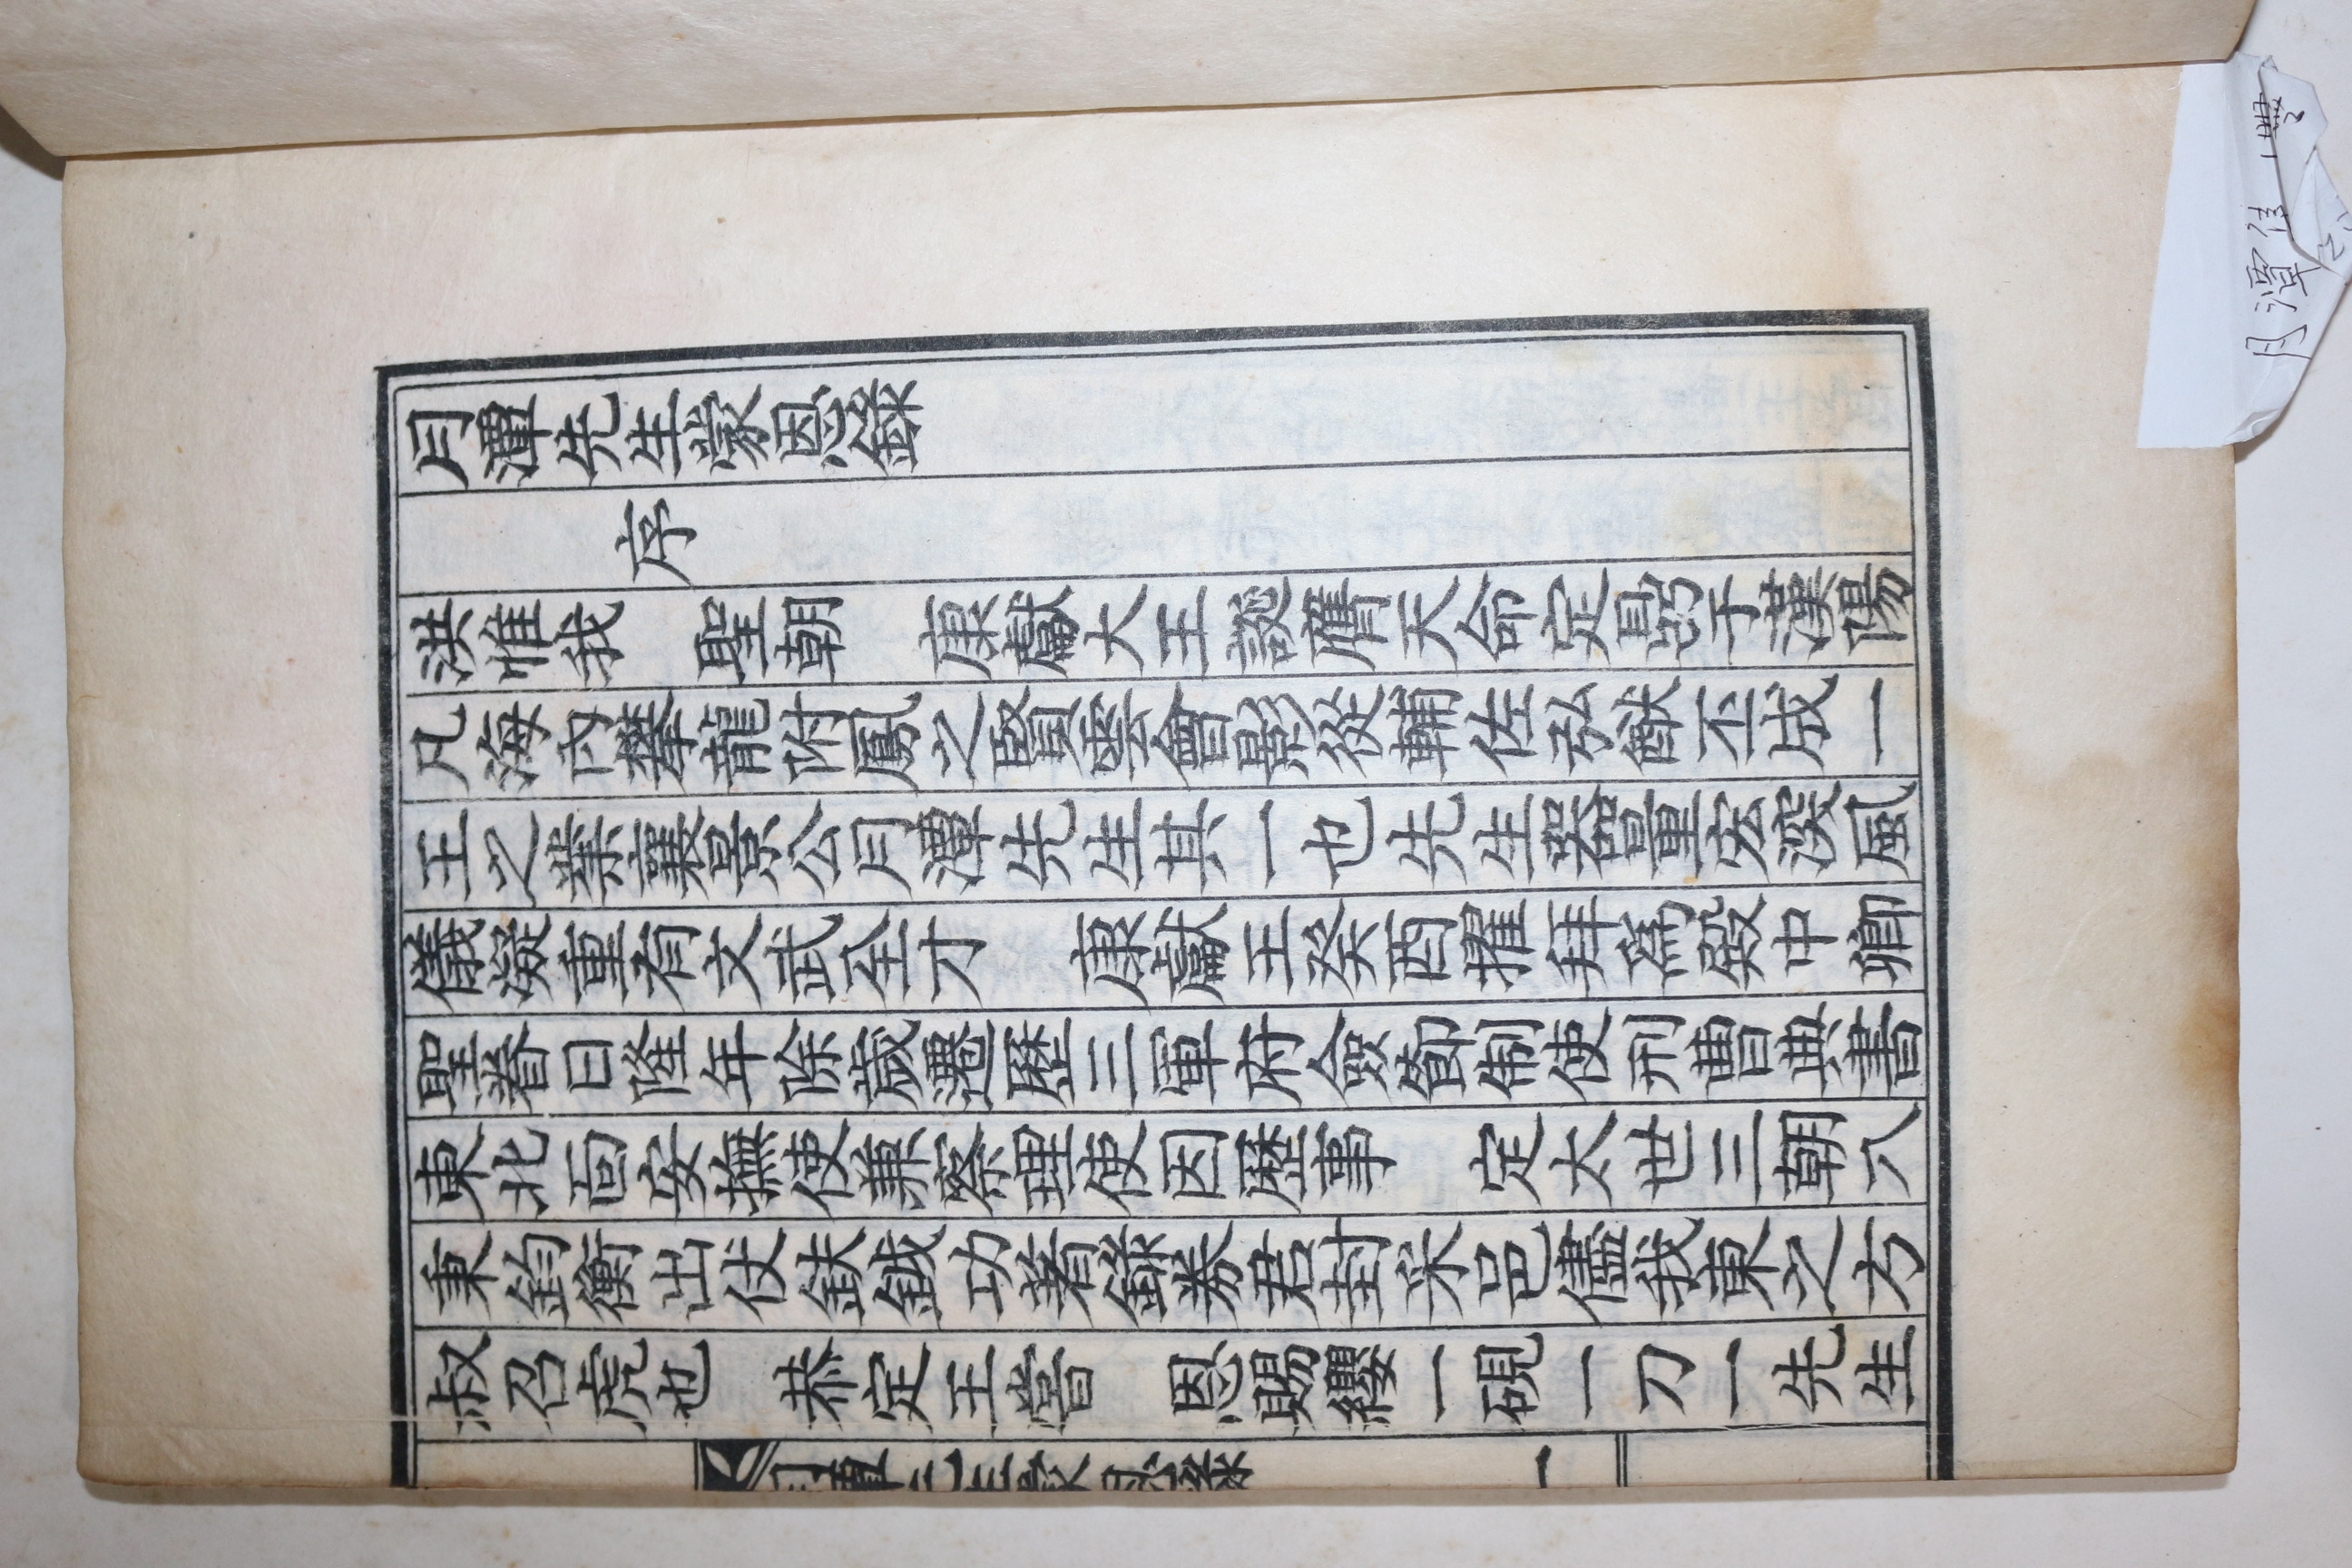 月潭先生蒙恩錄
序
洪惟我 聖朝 康獻大王誕膺天命定鼎于漢陽
凡海內攀龍附鳳之賢雲會景從輔佐弘猷丕成一
王之業襄景公月潭先生其一也先生器醞重宏深風
儀凝重有文武全才 康獻王癸酉擢拜爲殿中卿
聖眷日隆年除歲遷歷三軍府僉節制使刑曹典書
東北面安撫使兼察理使因歷事 定太世三朝入
秉鈞衡出仗鈇鉞功著錄券君封采邑儘我東之方
叔召虎也 恭定王嘗 恩賜纓一硯一刀一先生
月潭先生蒙恩錄 一
月潭先 一冊